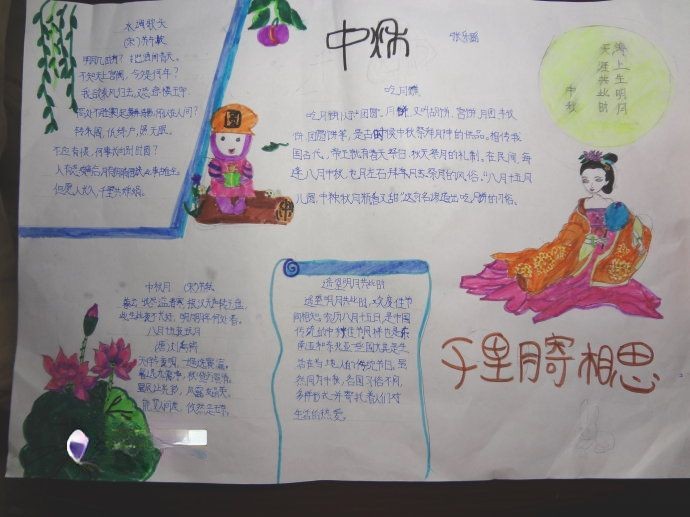 水调歌头
(宋)苏轼
明月几时有?把酒问青天。
不知天上宫阙,今夕是何年?
我欲乘风归去,又恐琼楼玉宇,
高处不胜寒,起舞弄清影,何似在人间?
转朱阁,低绮户,照无眠。
不应有恨,何事长向别时圆?
人有悲欢离合,月有阴晴圆缺,此事古难全。
但愿人长久,千里共婵娟。
中秋
张乐瑶
海上生明月
天涯共此时
中秋
吃月饼
月饼,又叫胡饼、宫饼、月团、丰收
饼、团圆饼等,是古时候中秋祭拜月神的供品。相传我
国古代,帝王就有春天祭日、秋天祭月的礼制。在民间,每
逢八月中秋,也有左右拜月或祭月的风俗。"八月十五月
儿圆,中秋月饼香又甜"
中秋月 (宋)苏轼
暮云收尽溢清寒,银汉无声转玉盘,
此生此夜不长好,明月明年何处看。
八月十五夜玩月
(唐)刘禹锡
天将今夜月,一遍洗寰瀛。
暑退九霄净,秋澄万景清。
星辰让光彩,风露发晶英。
能变人间世,攸然是玉京。
遥望明月共此时
遥望明月共此时,欢度佳节
间相思。农历八月十五日,是中国
传统的中秋佳节,同样也是东
南亚和东北亚一些国家尤其是生
活在当地人们的传统节日。虽
然同为中秋,各国习俗不同,
多种形式一并寄托着人们对
生活的热爱。
千里月寄相思